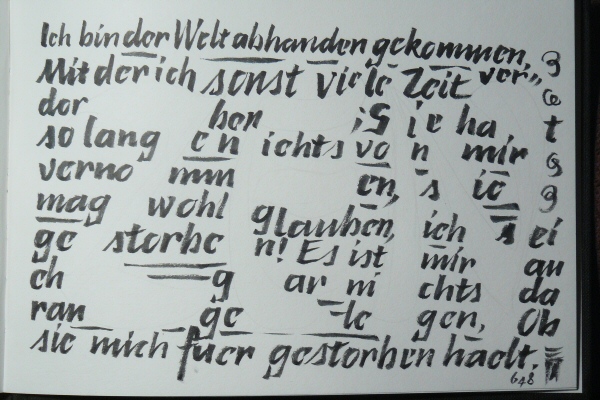 Ich bin der Welt abhanden gekommen,
Mit der ich sonst viele Zeit ver„
dor ben ; S ie ha,
so lang e n ichts vo n mir
verno mm en, s ie
mag wohl glauben, ich s ei
ge storbe n! Es ist mir au
ch g ar ni chts da
ran ge le gen, Ob
sie mich fuer gestorben haelt.
648